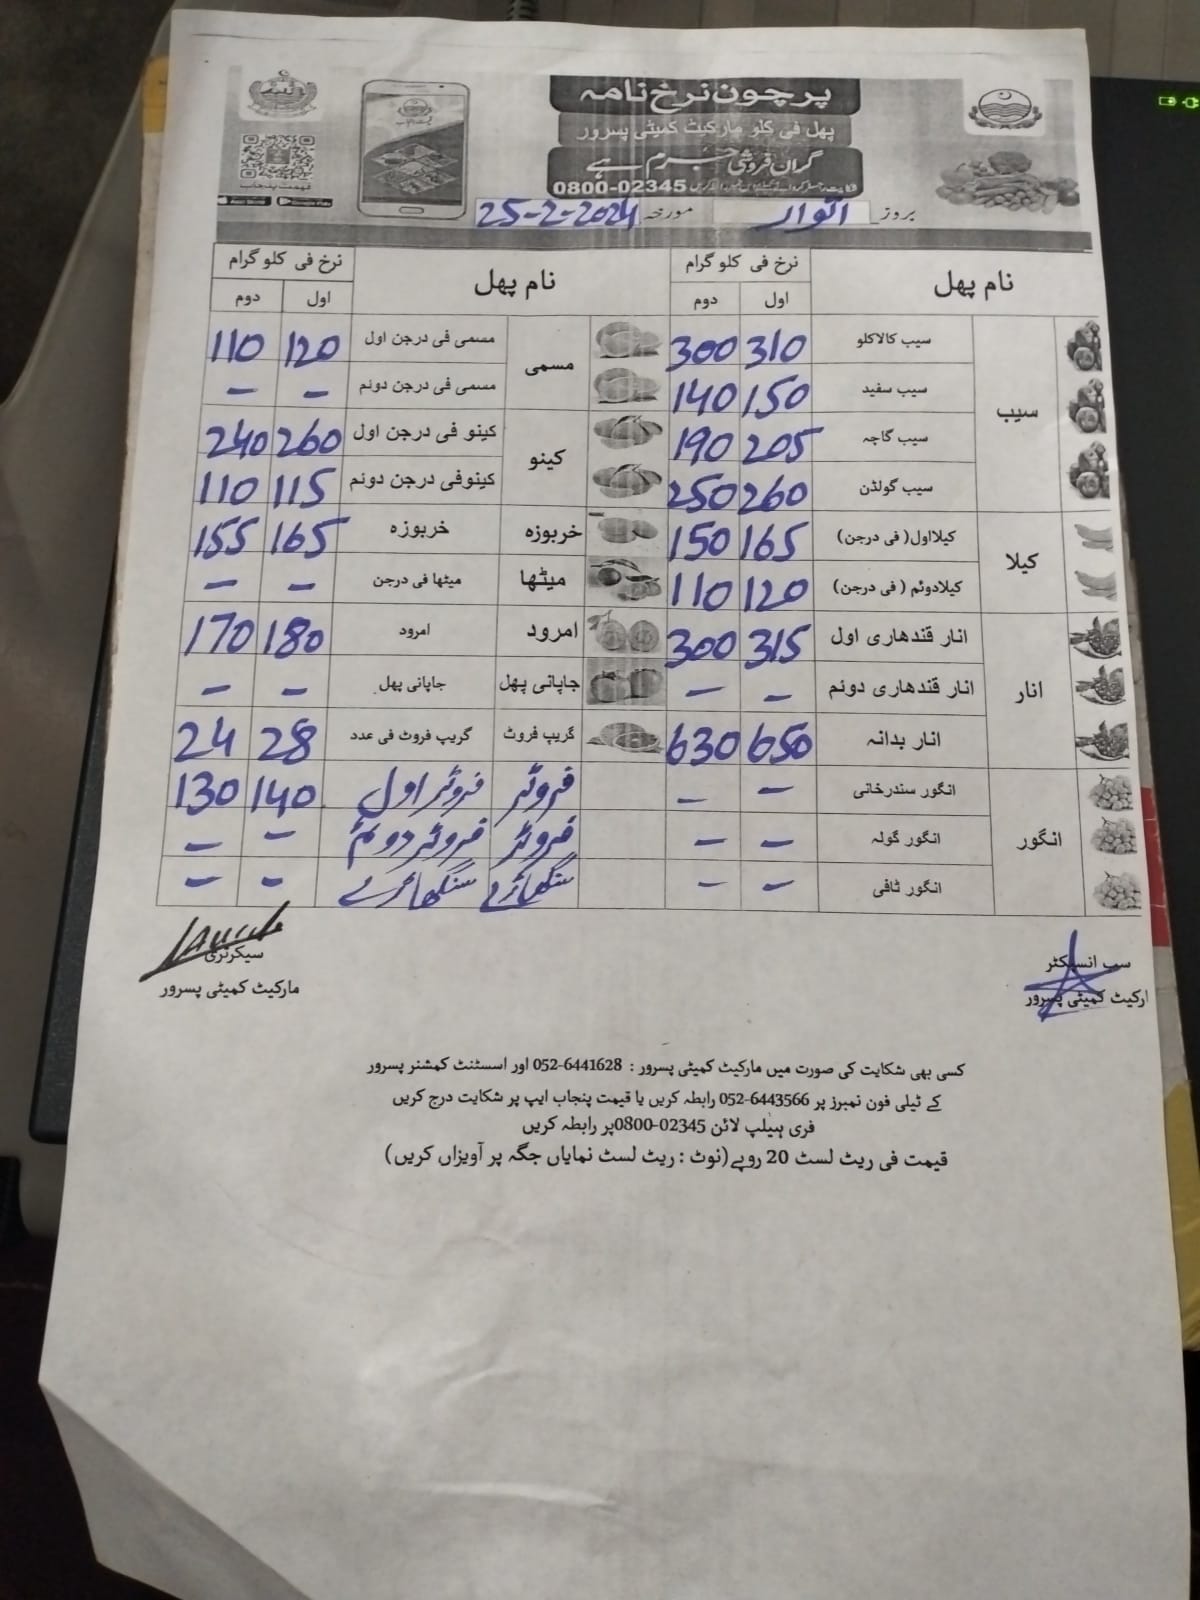 پرچون نرخ نامہ
پھل فی کلو مارکیٹ کمیٹی پسرور
گران فروشی جرم ہے
0800-02345
قیمت پنجاب
بروز اتوار مورخہ 25-2-2024
نام پھل نرخ فی کلو گرام نام پھل نرخ فی کلو گرام
اول دوم اول دوم
سیب سیب کالاکلو 310 300 مسمی مسمی فی درجن اول 120 110
سیب سفید 150 140 مسمی فی درجن دوئم - -
سیب گاچہ 205 190 کینو کینو فی درجن اول 260 240
سیب گولڈن 260 250 کینوفی درجن دوئم 115 110
کیلا کیلااول( فی درجن) 165 150 خربوزہ خربوزہ 165 155
کیلادوئم ( فی درجن) 120 110 میٹھا میٹھا فی درجن - -
انار انار قندھاری اول 315 300 امرود امرود 180 170
انار قندھاری دوئم - - جاپانی پھل جاپانی پھل - -
انار بدانہ 650 630 گریپ فروٹ گریپ فروٹ فی عدد 28 24
انگور انگور سندرخانی - - فروٹر فروٹر اول 140 130
انگور گولہ - - فروٹر فروٹر دوئم - -
انگور ٹافی - - سنگھاڑے سنگھاڑے - -
سب انسپکٹر سیکرٹری
ارکیٹ کمیٹی پسرور مارکیٹ کمیٹی پسرور
کسی بھی شکایت کی صورت میں مارکیٹ کمیٹی پسرور : 052-6441628 اور اسسٹنٹ کمشنر پسرور
کے ٹیلی فون نمبرز پر 052-6443566 رابطہ کریں یا قیمت پنجاب ایپ پر شکایت درج کریں
فری ہیلپ لائن 02345-0800پر رابطہ کریں
قیمت فی ریٹ لسٹ 20 روپے(نوٹ : ریٹ لسٹ نمایاں جگہ پر آویزاں کریں)